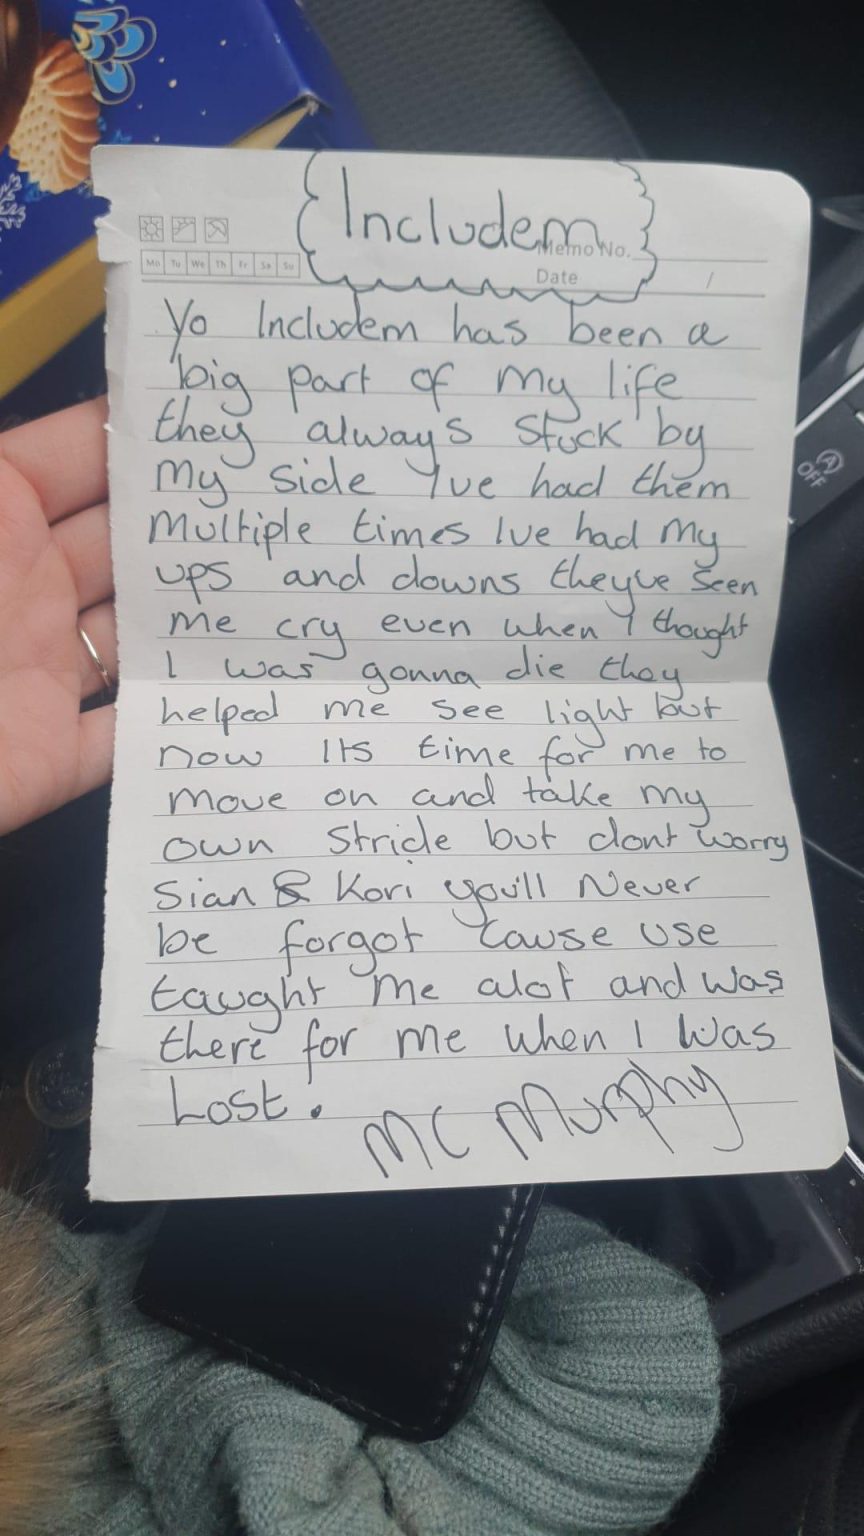 Includem
Memo No.
Mo Tu We Th Fr Sa Su
Date /
Yo Includem has been a
big part of my life
they always stuck by
my side Ive had them
Multiple times Ive had my
ups and downs theyve seen
me cry even when I thought
I was gonna die they
helped me see light but
now Its time for me to
move on and take my
own stride but dont worry
Sian & Kori you'll Never
be forgot cause use
taught me alot and was
there for me when I was
Lost.
MC Murphy
A
OFF